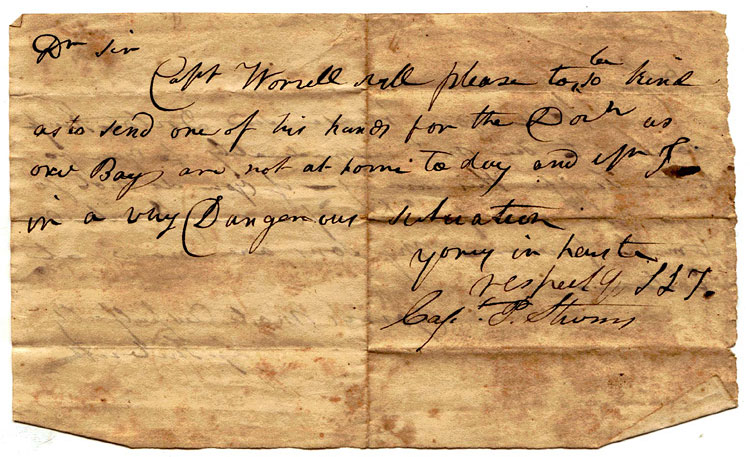 Dr Sir
Capt Worrell will please to be so kind
as to send one of his hands for the Doctr as
our Boys are not at home to day and Mr T
in a very Dangerous situation
yours in haste
respectly
Capt T.